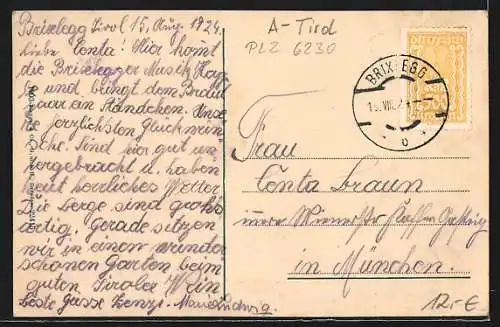 Brixlegg Tirol 15. Aug. 1924.
Liebe Centa! Hier komt
die Brixlegger Musik Kap
u. bringt dem Braut
paar ein Ständchen. Unse
re herzlichsten Glückwün
sche. Sind hier gut un
tergebracht u. haben
heut herrliches Wetter
Die Berge sind groß
artig. Gerade sitzen
wir in einem wunder
schönen Garten beim
guten Tiroler Wein
Beste Grüsse Zenzi. Marie Ludwig.
A - Tirol
PLZ 6230
BRIXLEGG
15.VIII.24
Frau
Centa Braun
innere Wienerstr
in München.
12,-€